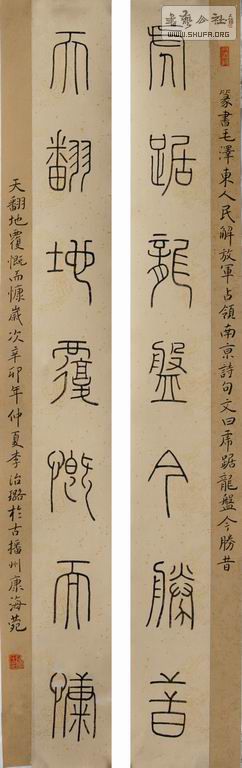 书艺公社
www.SHUFA.ORG
篆書毛澤東人民解放軍占領南京詩句文曰虎踞龍盤今勝昔
虎踞龍盤今勝昔
天翻地覆慨而慷
天翻地覆慨而慷歲次辛卯年仲夏李治璐於古播州康海苑